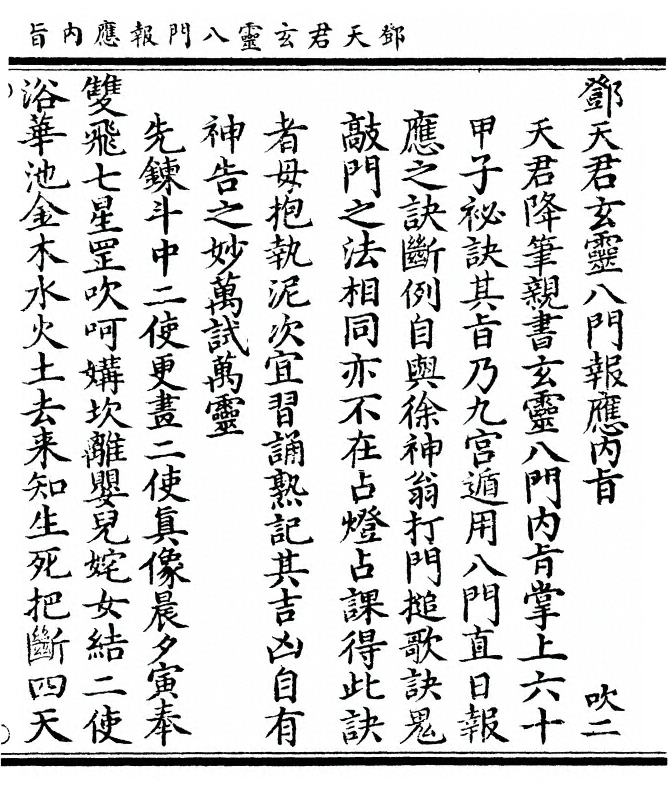 鄧天君玄靈八門報應內旨
鄧天君玄靈八門報應內旨 吹二
天君降筆親書玄靈八門內旨掌上六十
甲子祕訣其旨乃九宮遁用八門直日報
應之訣斷例自與徐神翁打門搥歌訣鬼
敲門之法相同亦不在占燈占課得此訣
者毋抱執泥次宜習誦熟記其吉凶自有
神告之妙萬試萬靈
先鍊斗中二使更畫二使真像晨夕寅奉
雙飛七星罡吹呵媾坎離嬰兒姹女結二使
浴華池金木水火土去来知生死把斷四天